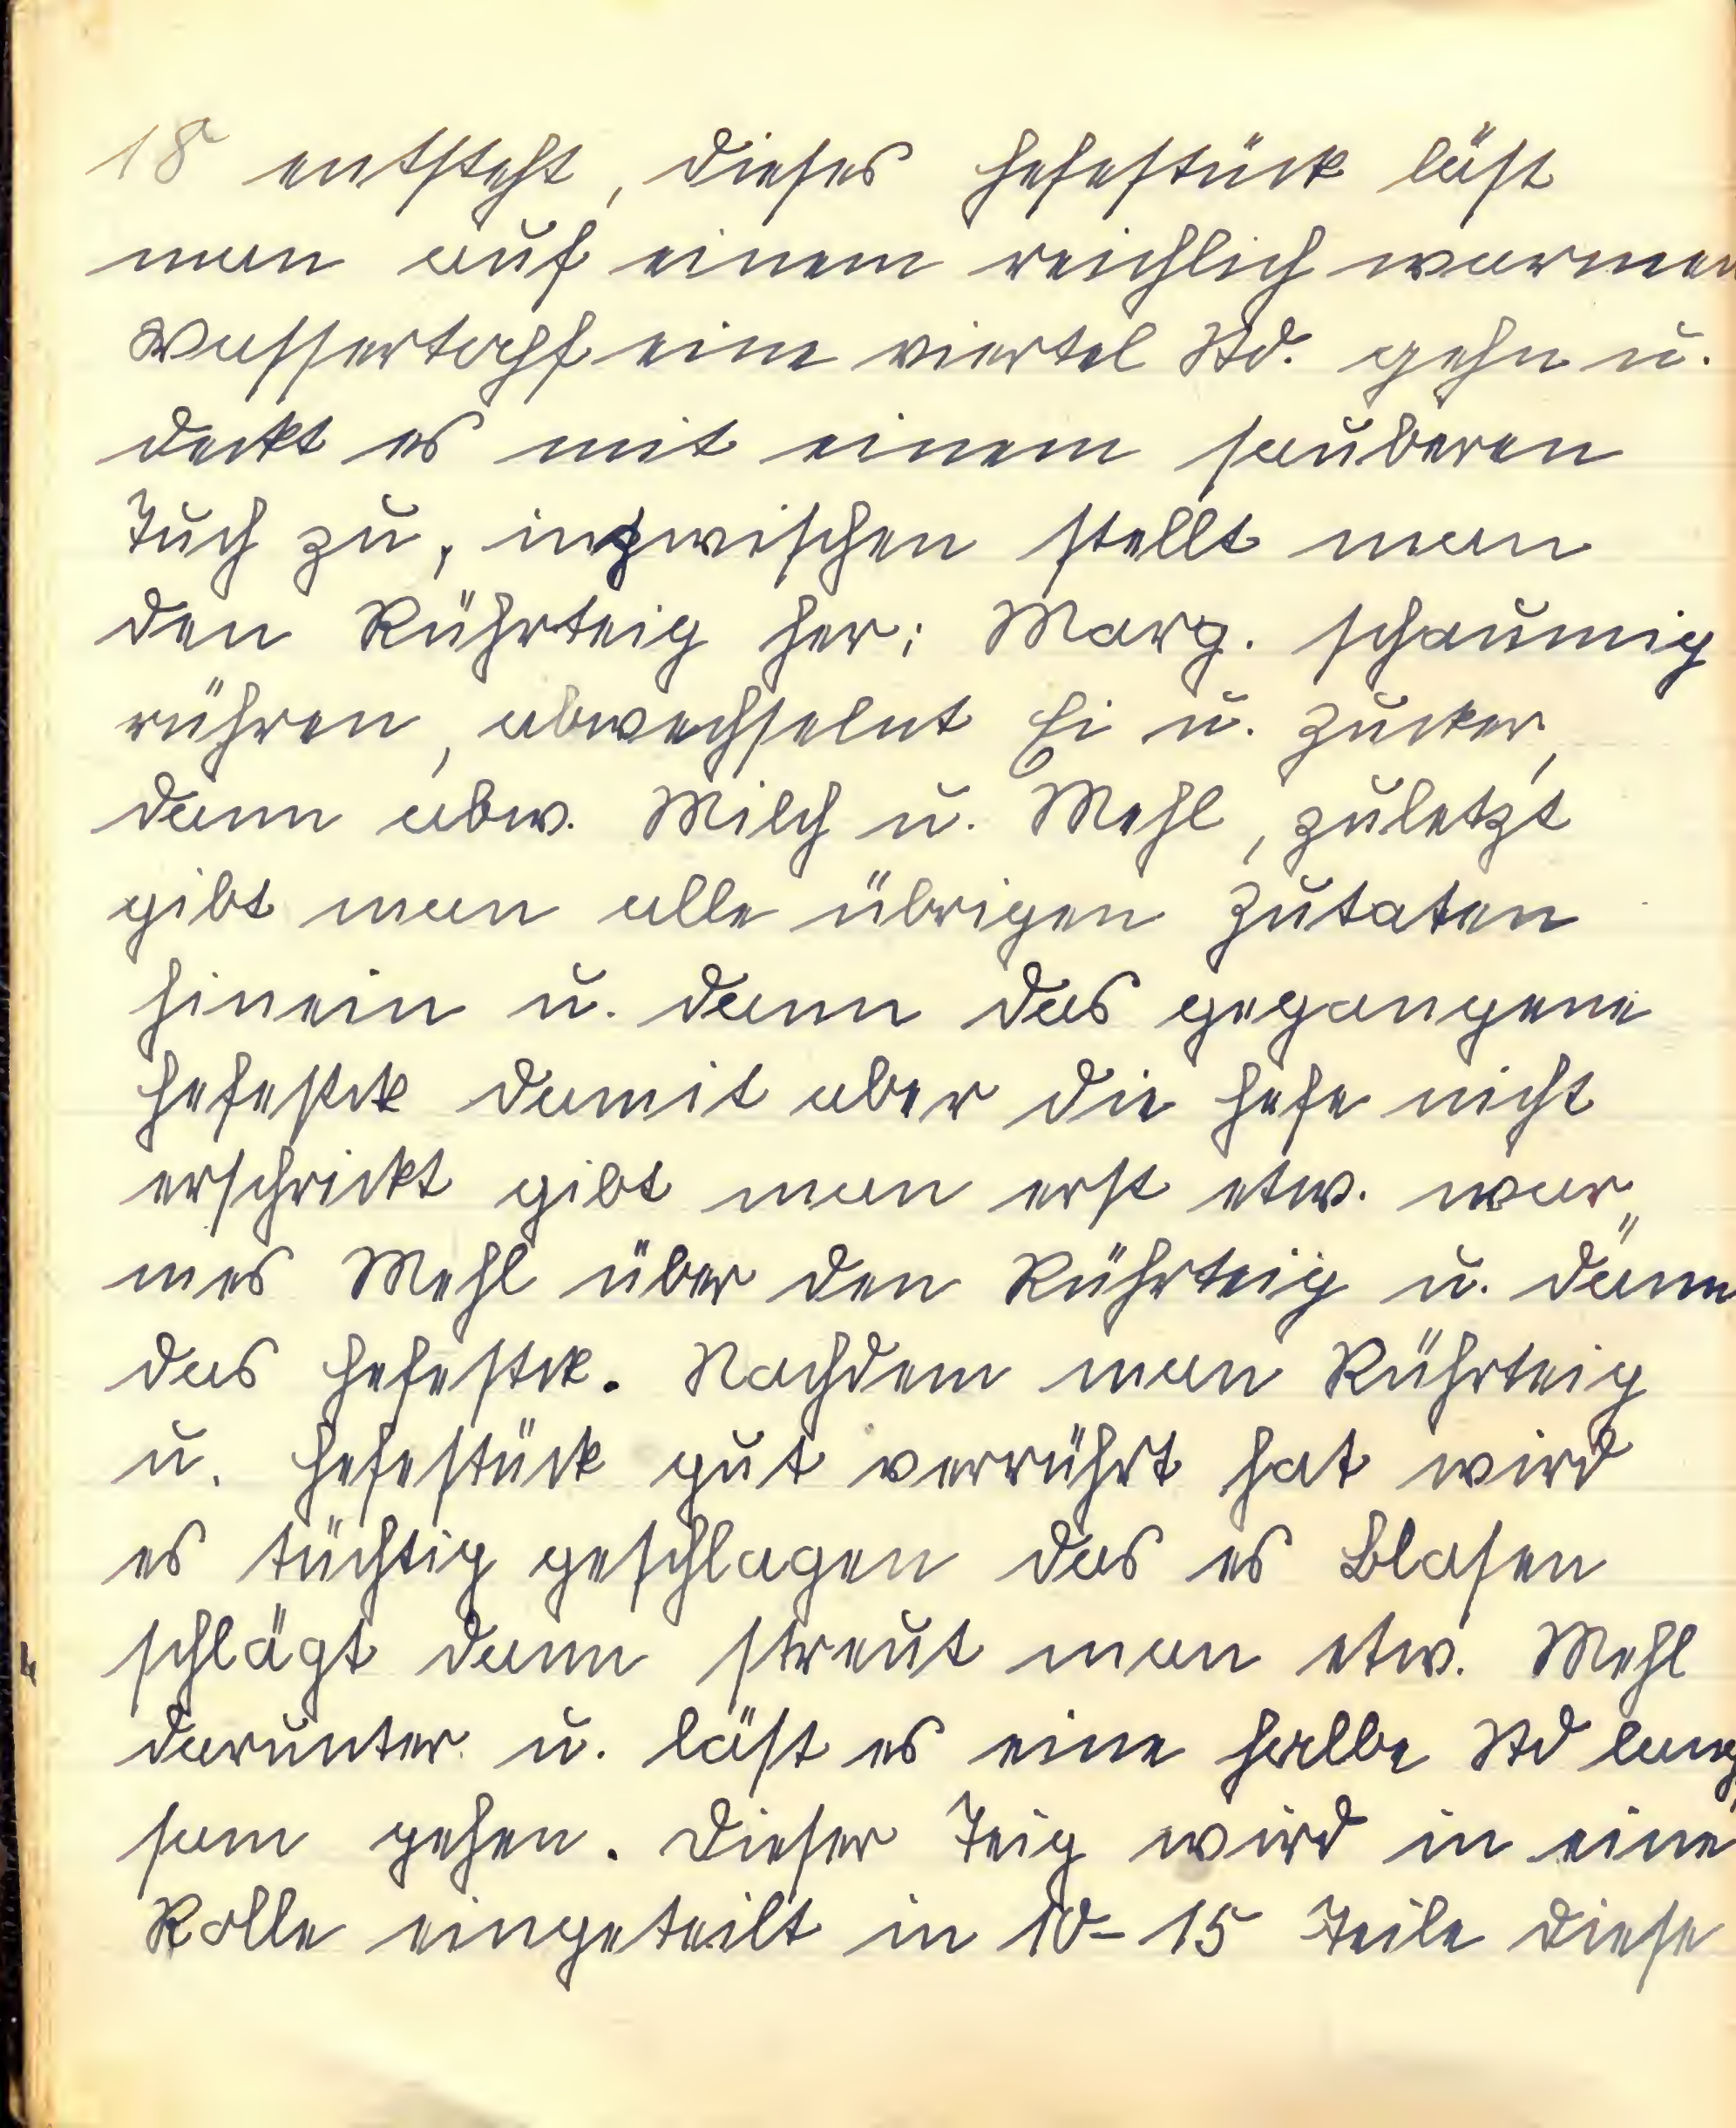 18 entsteht, dieses Hefestück läst
man auf einem reichlich warmen
Wassertopf eine viertel Std. gehn u.
deckt es mit einem sauberen
Tuch zu, inzwischen stellt man
den Rührteig her: Marg. schaumig
rühren, abwechselnt Ei u. Zucker,
dann abw. Milch u. Mehl, zuletzt
gibt man alle übrigen Zutaten
hinein u. dann das gegangene
Hefestck damit aber die Hefe nicht
erschrickt gibt man erst etw. war„
mes Mehl über den Rührteig u. dann
das Hefestck. Nachdem man Rührteig
u. Hefestück gut verrührt hat wird
es tüchtig geschlagen das es Blasen
schlägt dann streut man etw. Mehl
darunter u. läst es eine halbe Std lang
sam gehen. Dieser Teig wird in eine
Rolle eingeteilt in 10-15 Teile diese